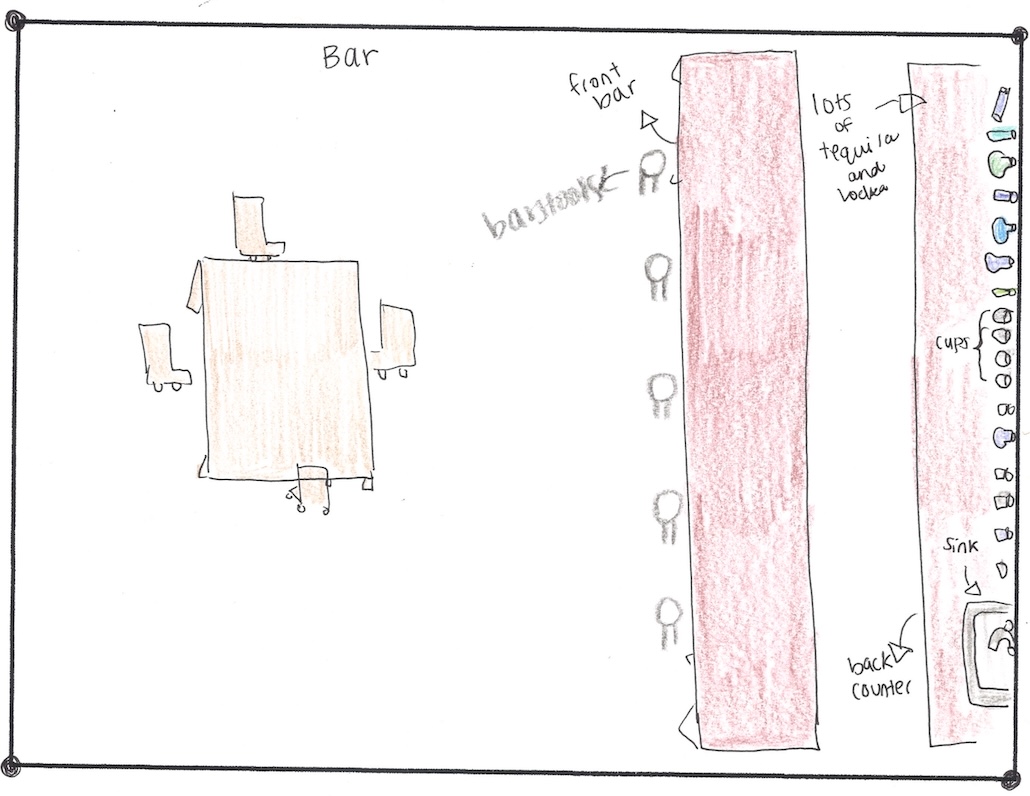 Bar
front
bar
barstools
lots
of
tequila
and
vodka
cups
sink
back
counter